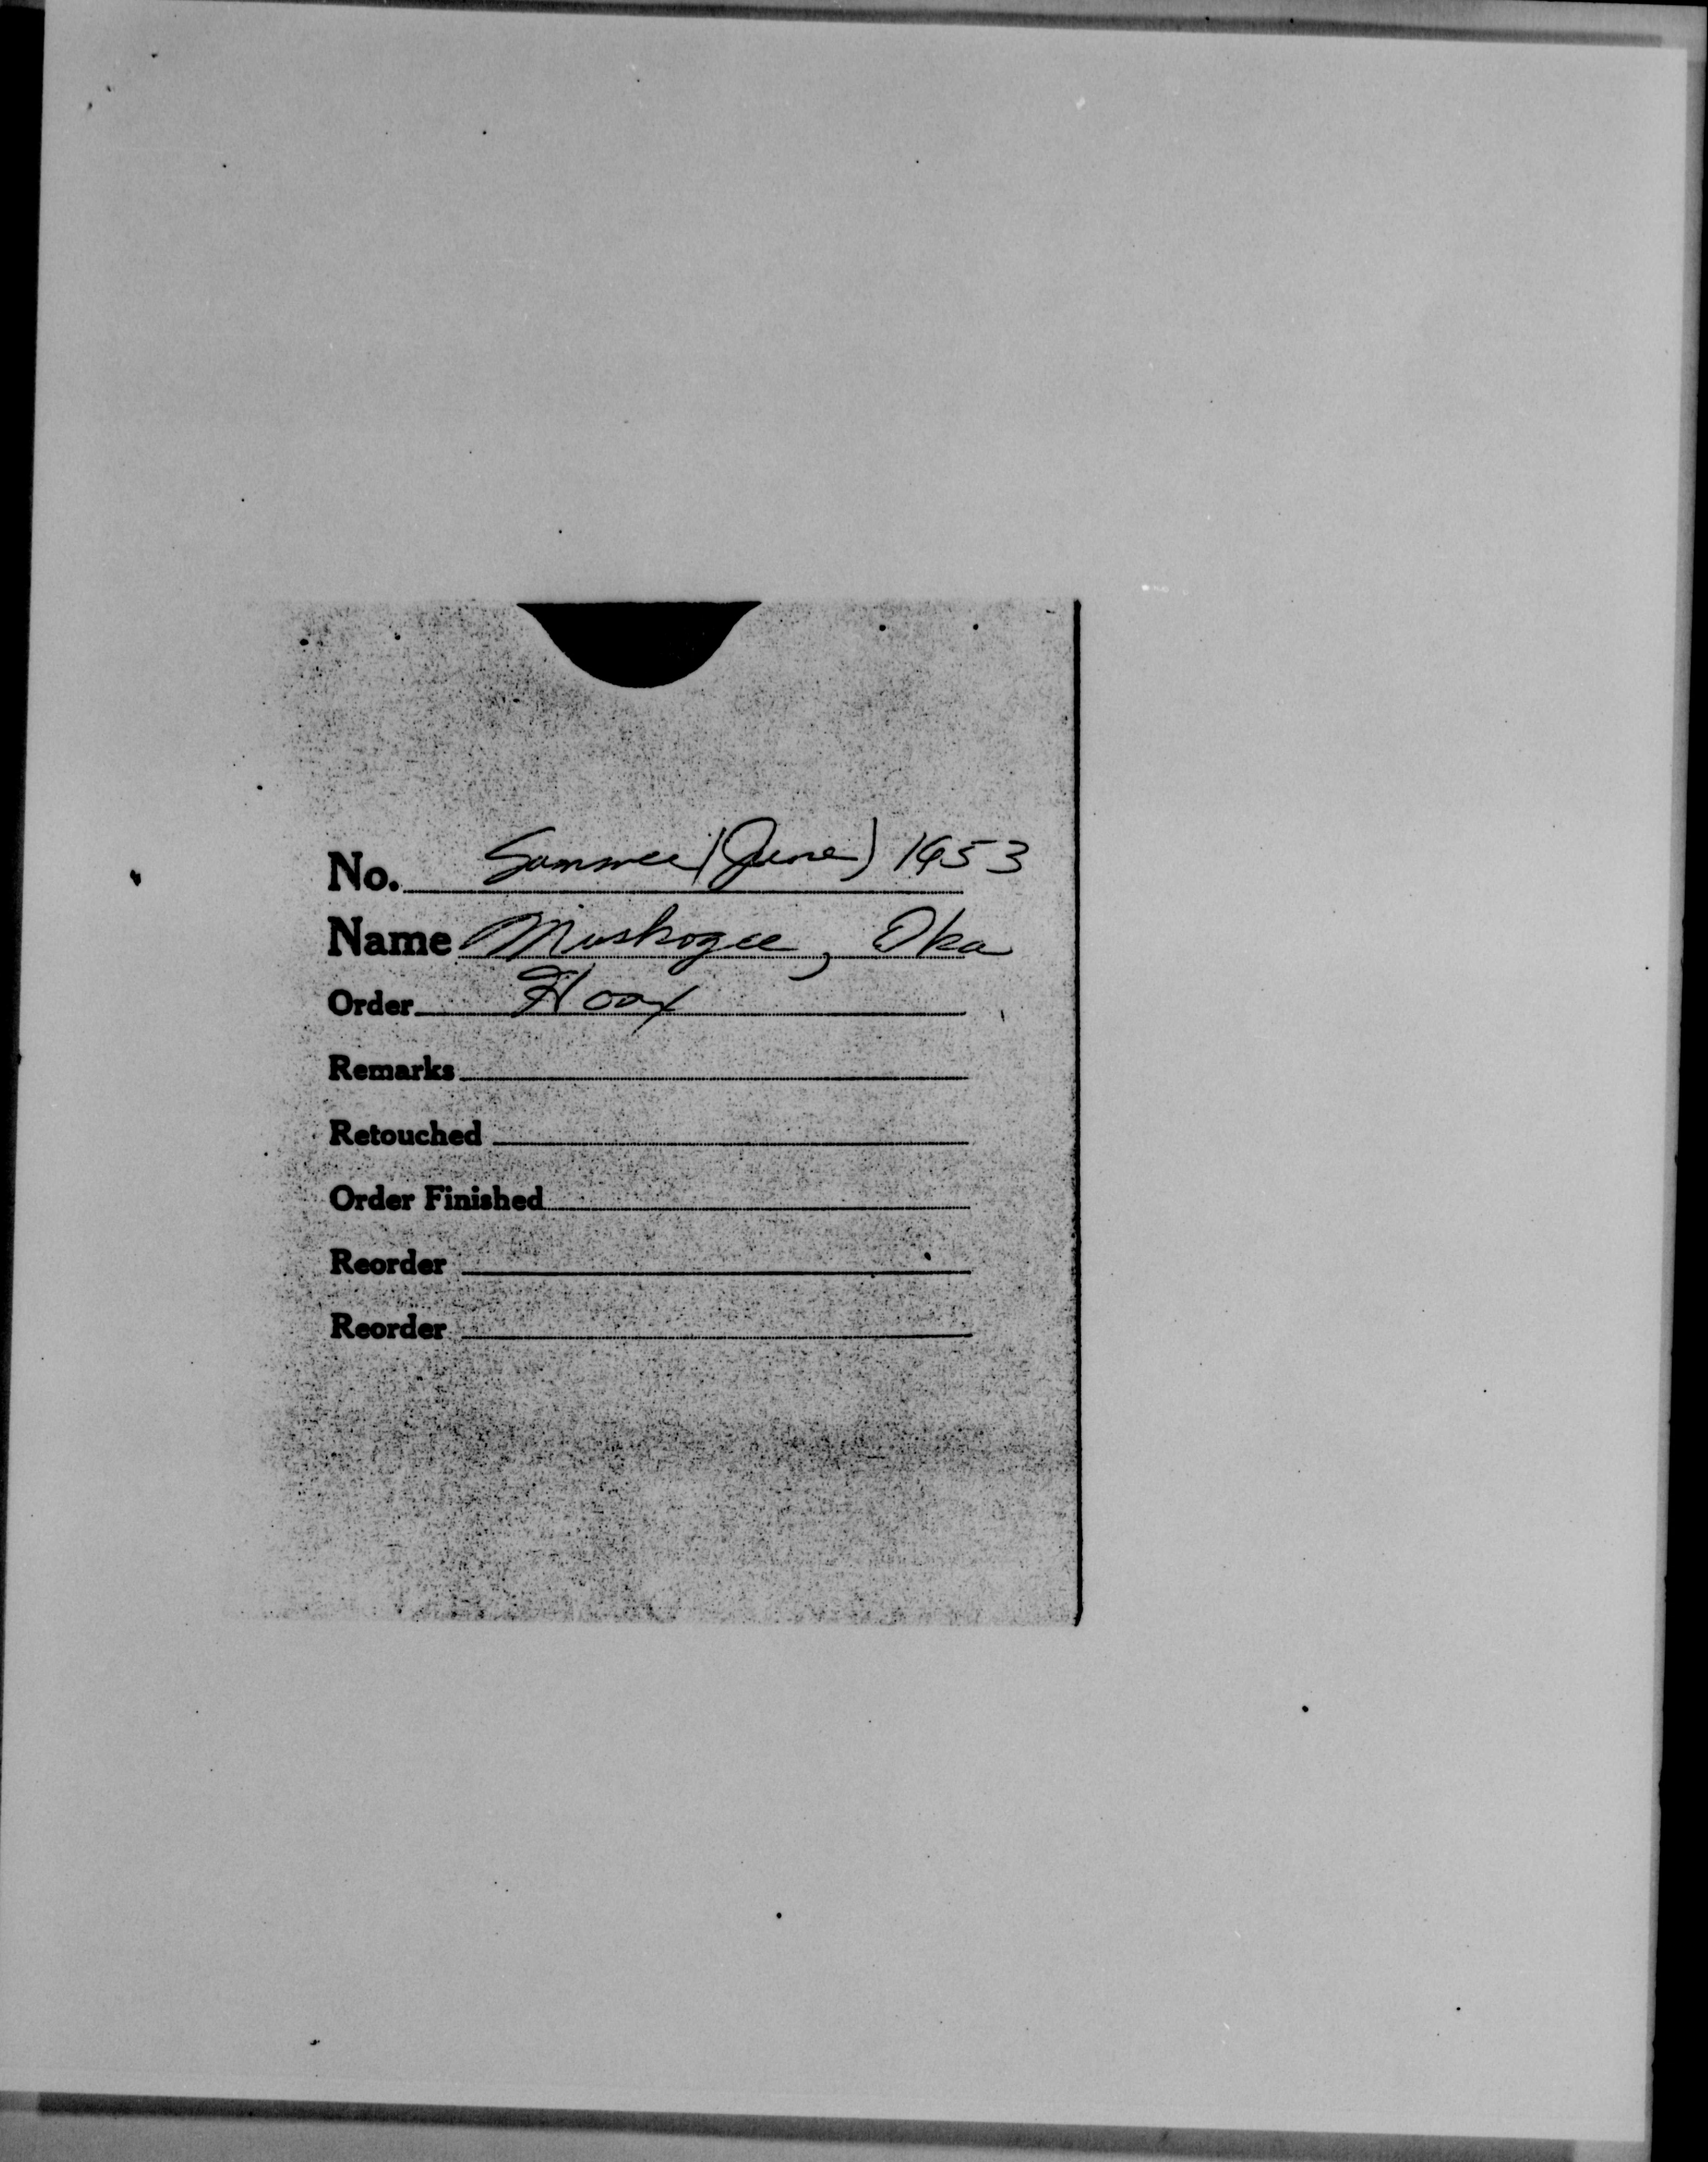 No. Summer (June) 1953
Name Muskogee, Oka
Order Hoax
Remarks
Retouched
Order Finished
Reorder
Reorder